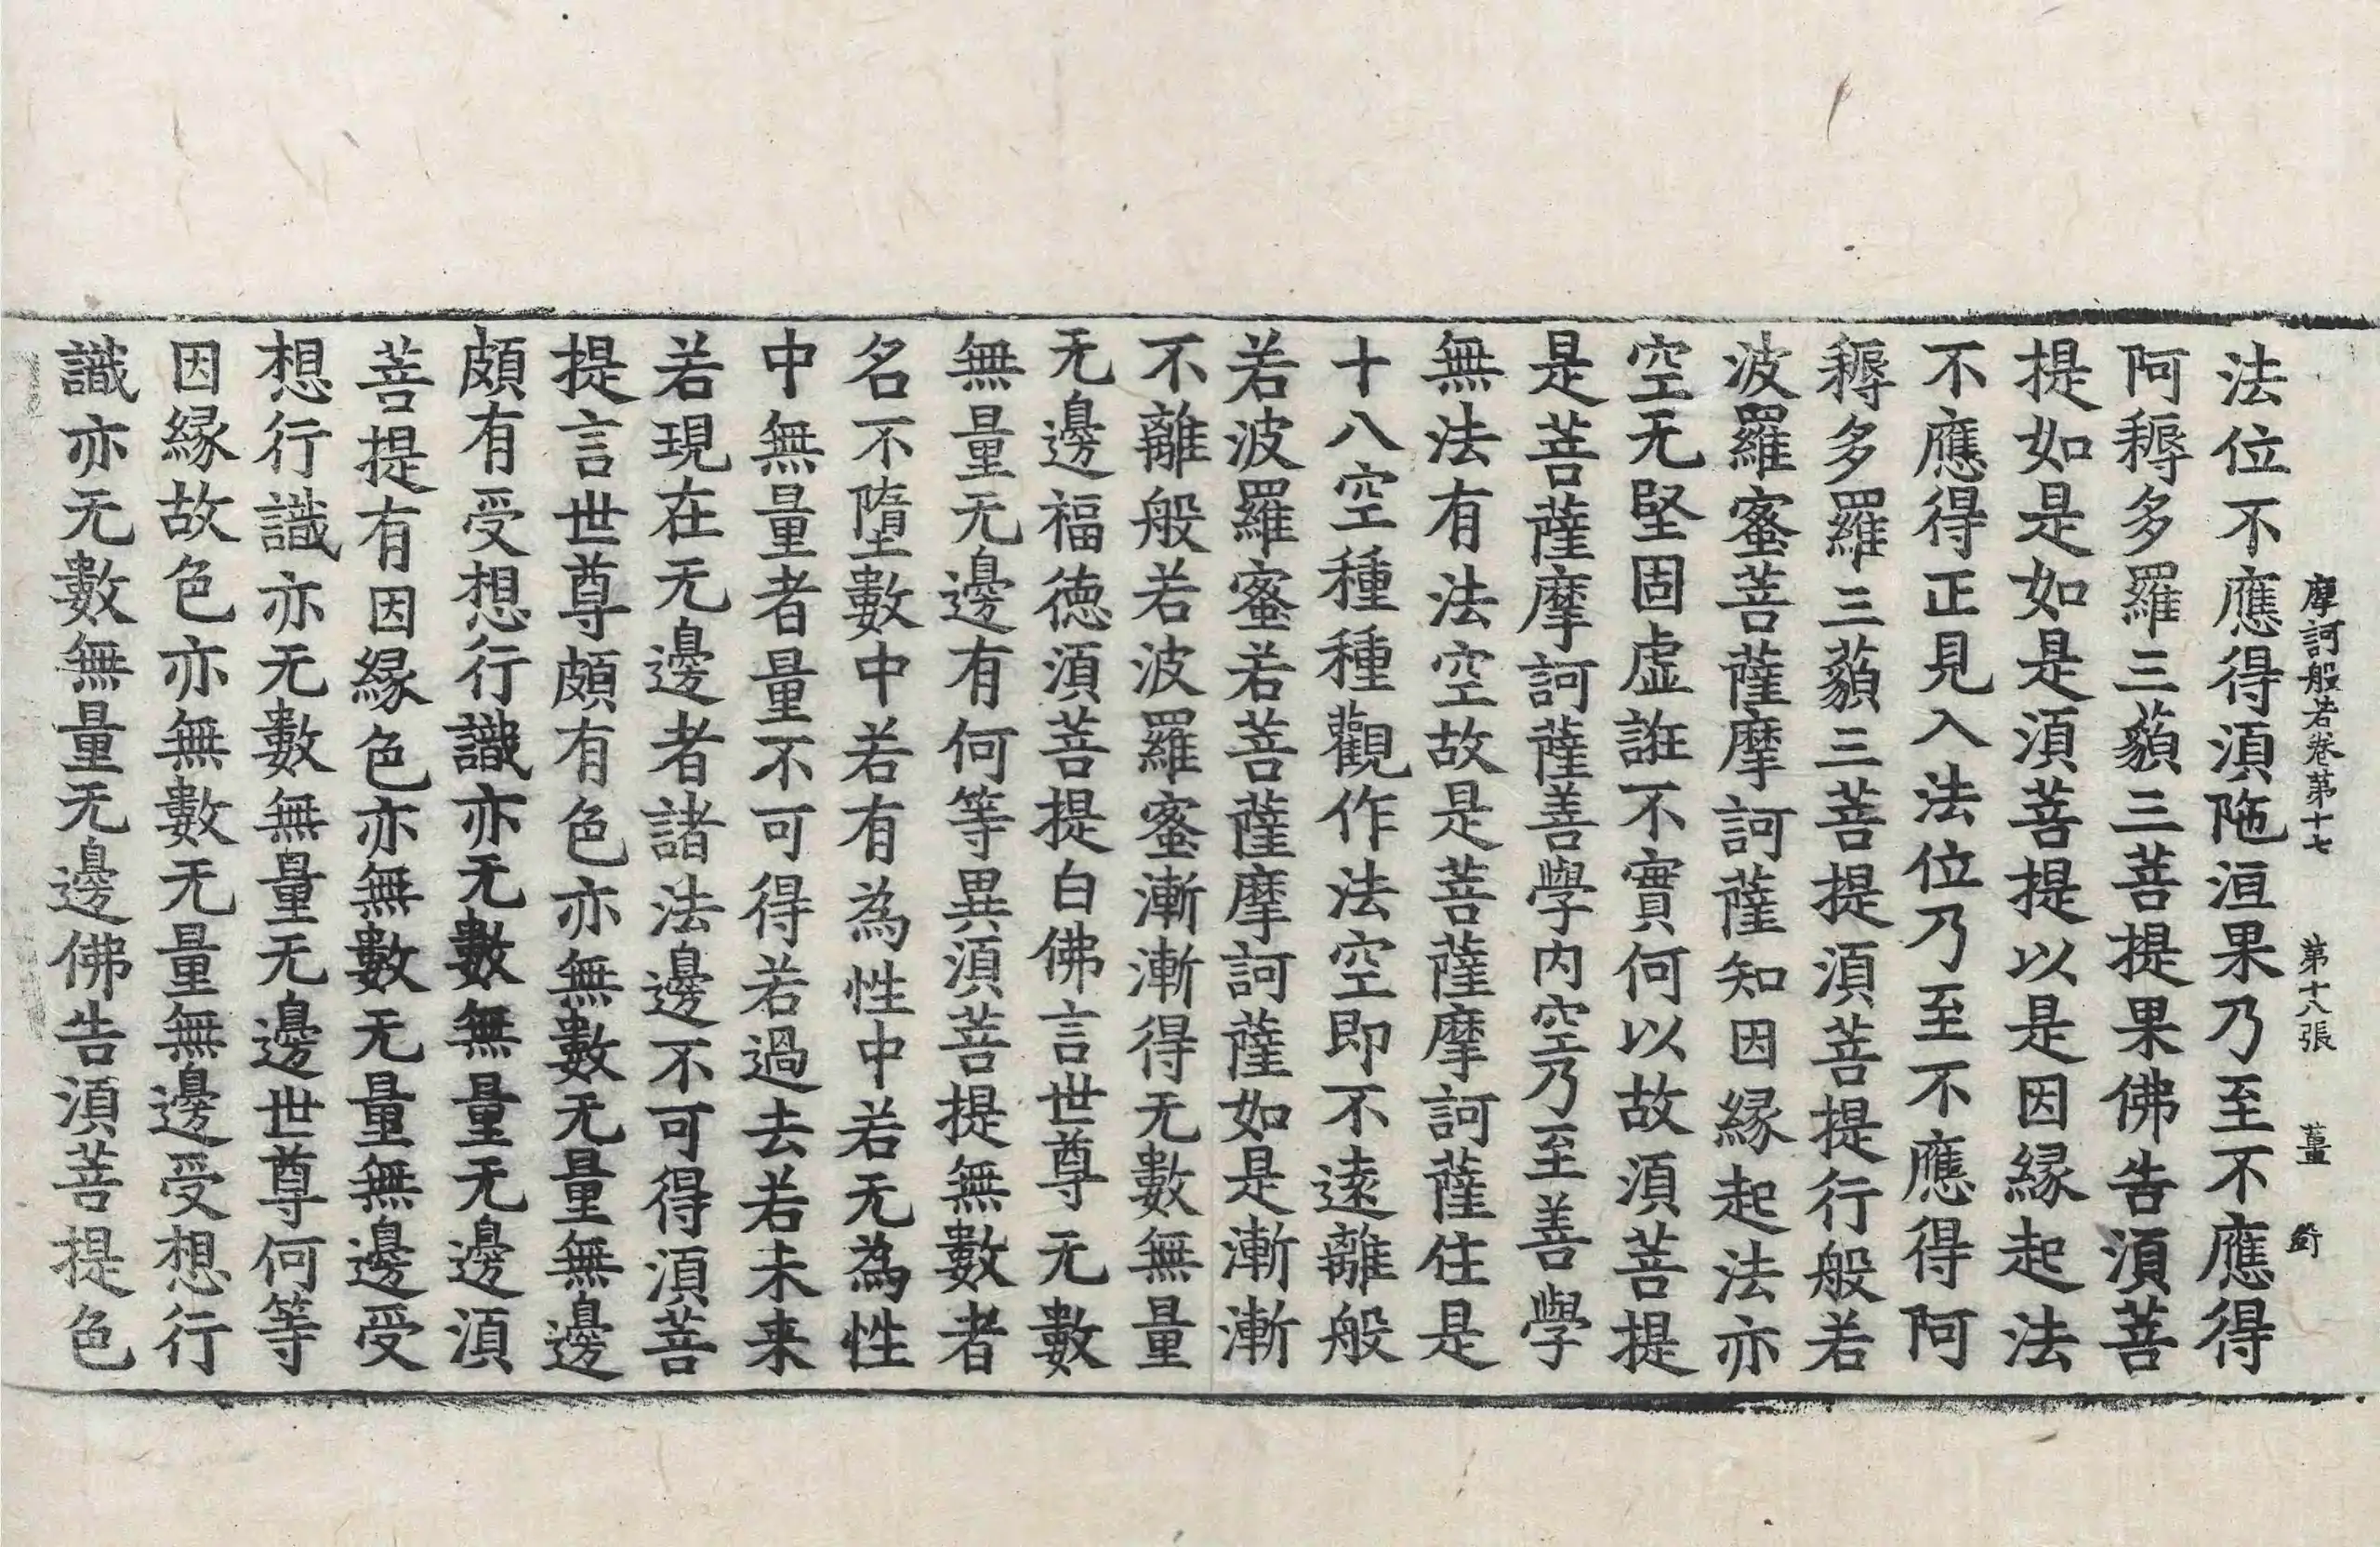 摩訶般若卷第十七　第十八張　薑
法位不應得湏陁洹果乃至不應得
阿耨多羅三藐三菩提果佛告湏菩
提如是如是湏菩提以是因縁起法
不應得正見入法位乃至不應得阿
耨多羅三藐三菩提湏菩提行般若
波羅蜜菩薩摩訶薩知因縁起法亦
空无堅固虛誑不實何以故湏菩提
是菩薩摩訶薩善學内空乃至善學
無法有法空故是菩薩摩訶薩住是
十八空種種觀作法空即不遠離般
若波羅蜜若菩薩摩訶薩如是漸漸
不離般若波羅蜜漸漸得无數無量
无邊福德湏菩提白佛言世尊无數
無量无邊有何等異湏菩提無數者
名不墮數中若有為性中若无為性
中無量者量不可得若過去若未来
若現在无邊者諸法邊不可得湏菩
提言世尊頗有色亦無數无量無邊
頗有受想行識亦无數無量无邊湏
菩提有因縁色亦無數无量無邊受
想行識亦无數無量无邊世尊何等
因縁故色亦無數无量無邊受想行
識亦无數無量无邊佛告湏菩提色